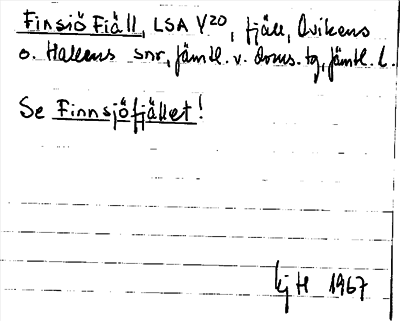 Finsiö Fiäll, LSA Y20, fjäll, Ovikens
o. Hallens snr, Jämtl. v. doms. tg, Jämtl. l.
Se Finnsjöfjället!
1967